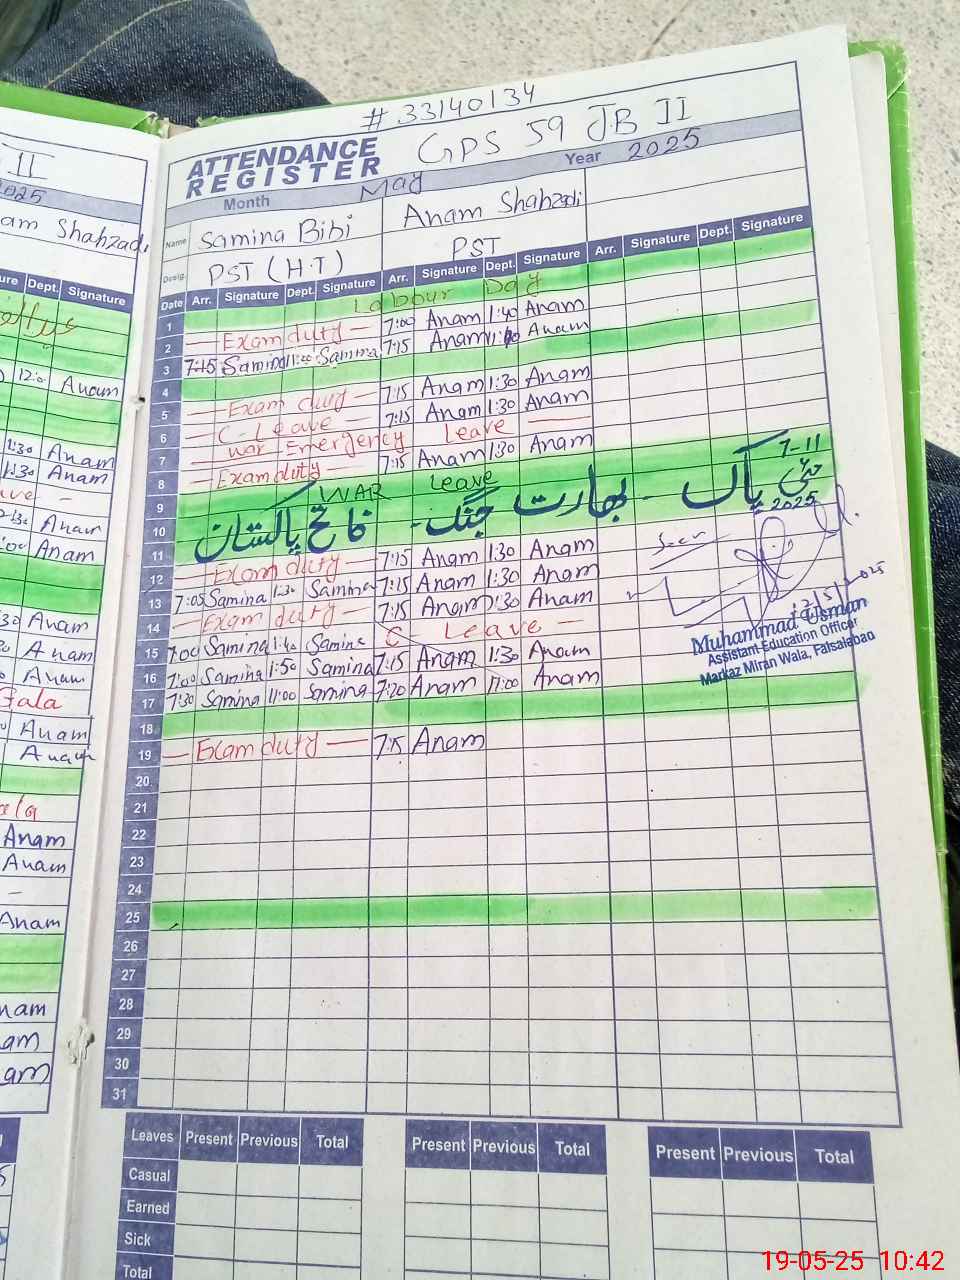 # 33140134
ATTENDANCE REGISTER GPS 59 JB II
Month May Year 2025
Name Samina Bibi Anam Shahzadi
Desig. PST (H.T) PST
Date Arr. Signature Dept. Signature Arr. Signature Dept. Signature Arr. Signature Dept. Signature
1 Labour Day
2 Exam duty 7:00 Anam 1:40 Anam
3 7:15 Samina 11:00 Samina 7:15 Anam Anam
4
5 Exam duty 7:15 Anam 1:30 Anam
6 C-Leave 7:15 Anam 1:30 Anam
7 War Emergency Leave
8 Exam duty 7:15 Anam 1:30 Anam
9 WAR Leave 7-11
10 فاتح پاکستان - جنگ بھارت - پاک مئی 2025
11
12 Exam duty 7:15 Anam 1:30 Anam
13 7:05 Samina 1:30 Samina 7:15 Anam 1:30 Anam
14 Exam duty 7:15 Anam 1:30 Anam
15 7:00 Samina 1:40 Samina C Leave
16 7:00 Samina 1:50 Samina 7:15 Anam 1:30 Anam
17 7:30 Samina 11:00 Samina 7:20 Anam 11:00 Anam
18
19 Exam duty 7:15 Anam
20
21
22
23
24
25
26
27
28
29
30
31
Seen
12/5/2025
Muhammad Usman
Assistant Education Officer
Markaz Miran Wala, Faisalabad
Leaves Present Previous Total Present Previous Total Present Previous Total
Casual
Earned
Sick
Total
II
2025
am Shahzadi
ure Dept. Signature
12:0 Anam
1:30 Anam
1:30 Anam
ave -
Anam
:00 Anam
30 Anam
Anam
Anam
Gala
Anam
Anam
ala
Anam
Anam
-
Anam
nam
am
am
19-05-25 10:42